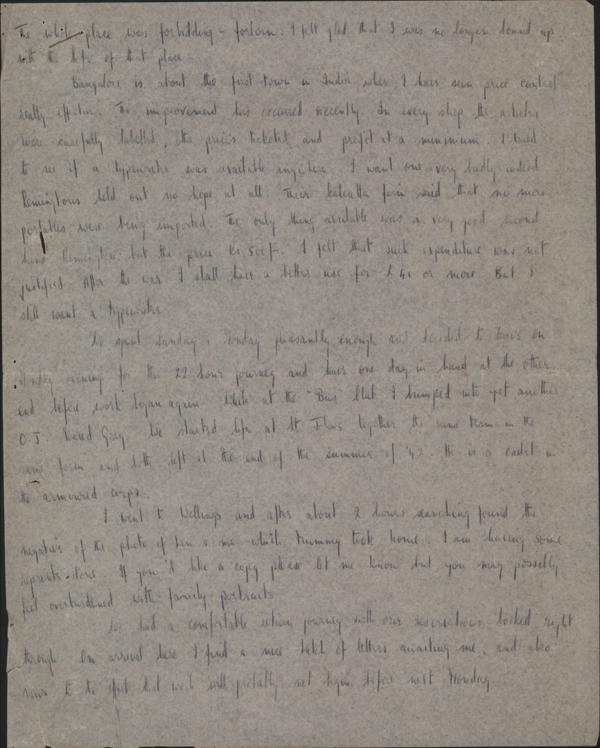 The whole place was forbidding - forlorn. I felt glad that I was no longer bound up
with the life of that place.
Bangalore is about the first town in India where I have seen price control
really effective. The improvement has occurred recently. In every shop the articles
were carefully labelled, the prices ticketed and profit at a minimum. I tried
to see if a typewriter was available anywhere. I want one very badly indeed
Remingtons held out no hope at all. Their Calcutta firm said that no more
portables were being imported. The only thing available was a very good second
hand Remington, but the price Rs. 500/-. I felt that such expenditure was not
justified. After the war I shall have a better use for £40 or more. But I
still want a typewriter.
We spent Sunday & Monday pleasantly enough and decided to leave on
Monday evening for the 22 hour journey and have one day in hand at the other
end before work began again. While at the I bumped into yet another
O.J. David Gray. We started life at St together the same term in the
same form and both left at the end of the summer of '42. He is a cadet in
the armoured corps.
I went to and after about 2 hours searching found the
negative of the photo of & me which Mummy took home. I am having some
reprints done. If you'd like a copy please let me know but you may possibly
feel overburdened with family portraits.
We had a comfortable return journey with our reservations booked right
through. On arrival here I find a nice batch of letters awaiting me, and also
news to the effect that work will probably not begin before next Monday.